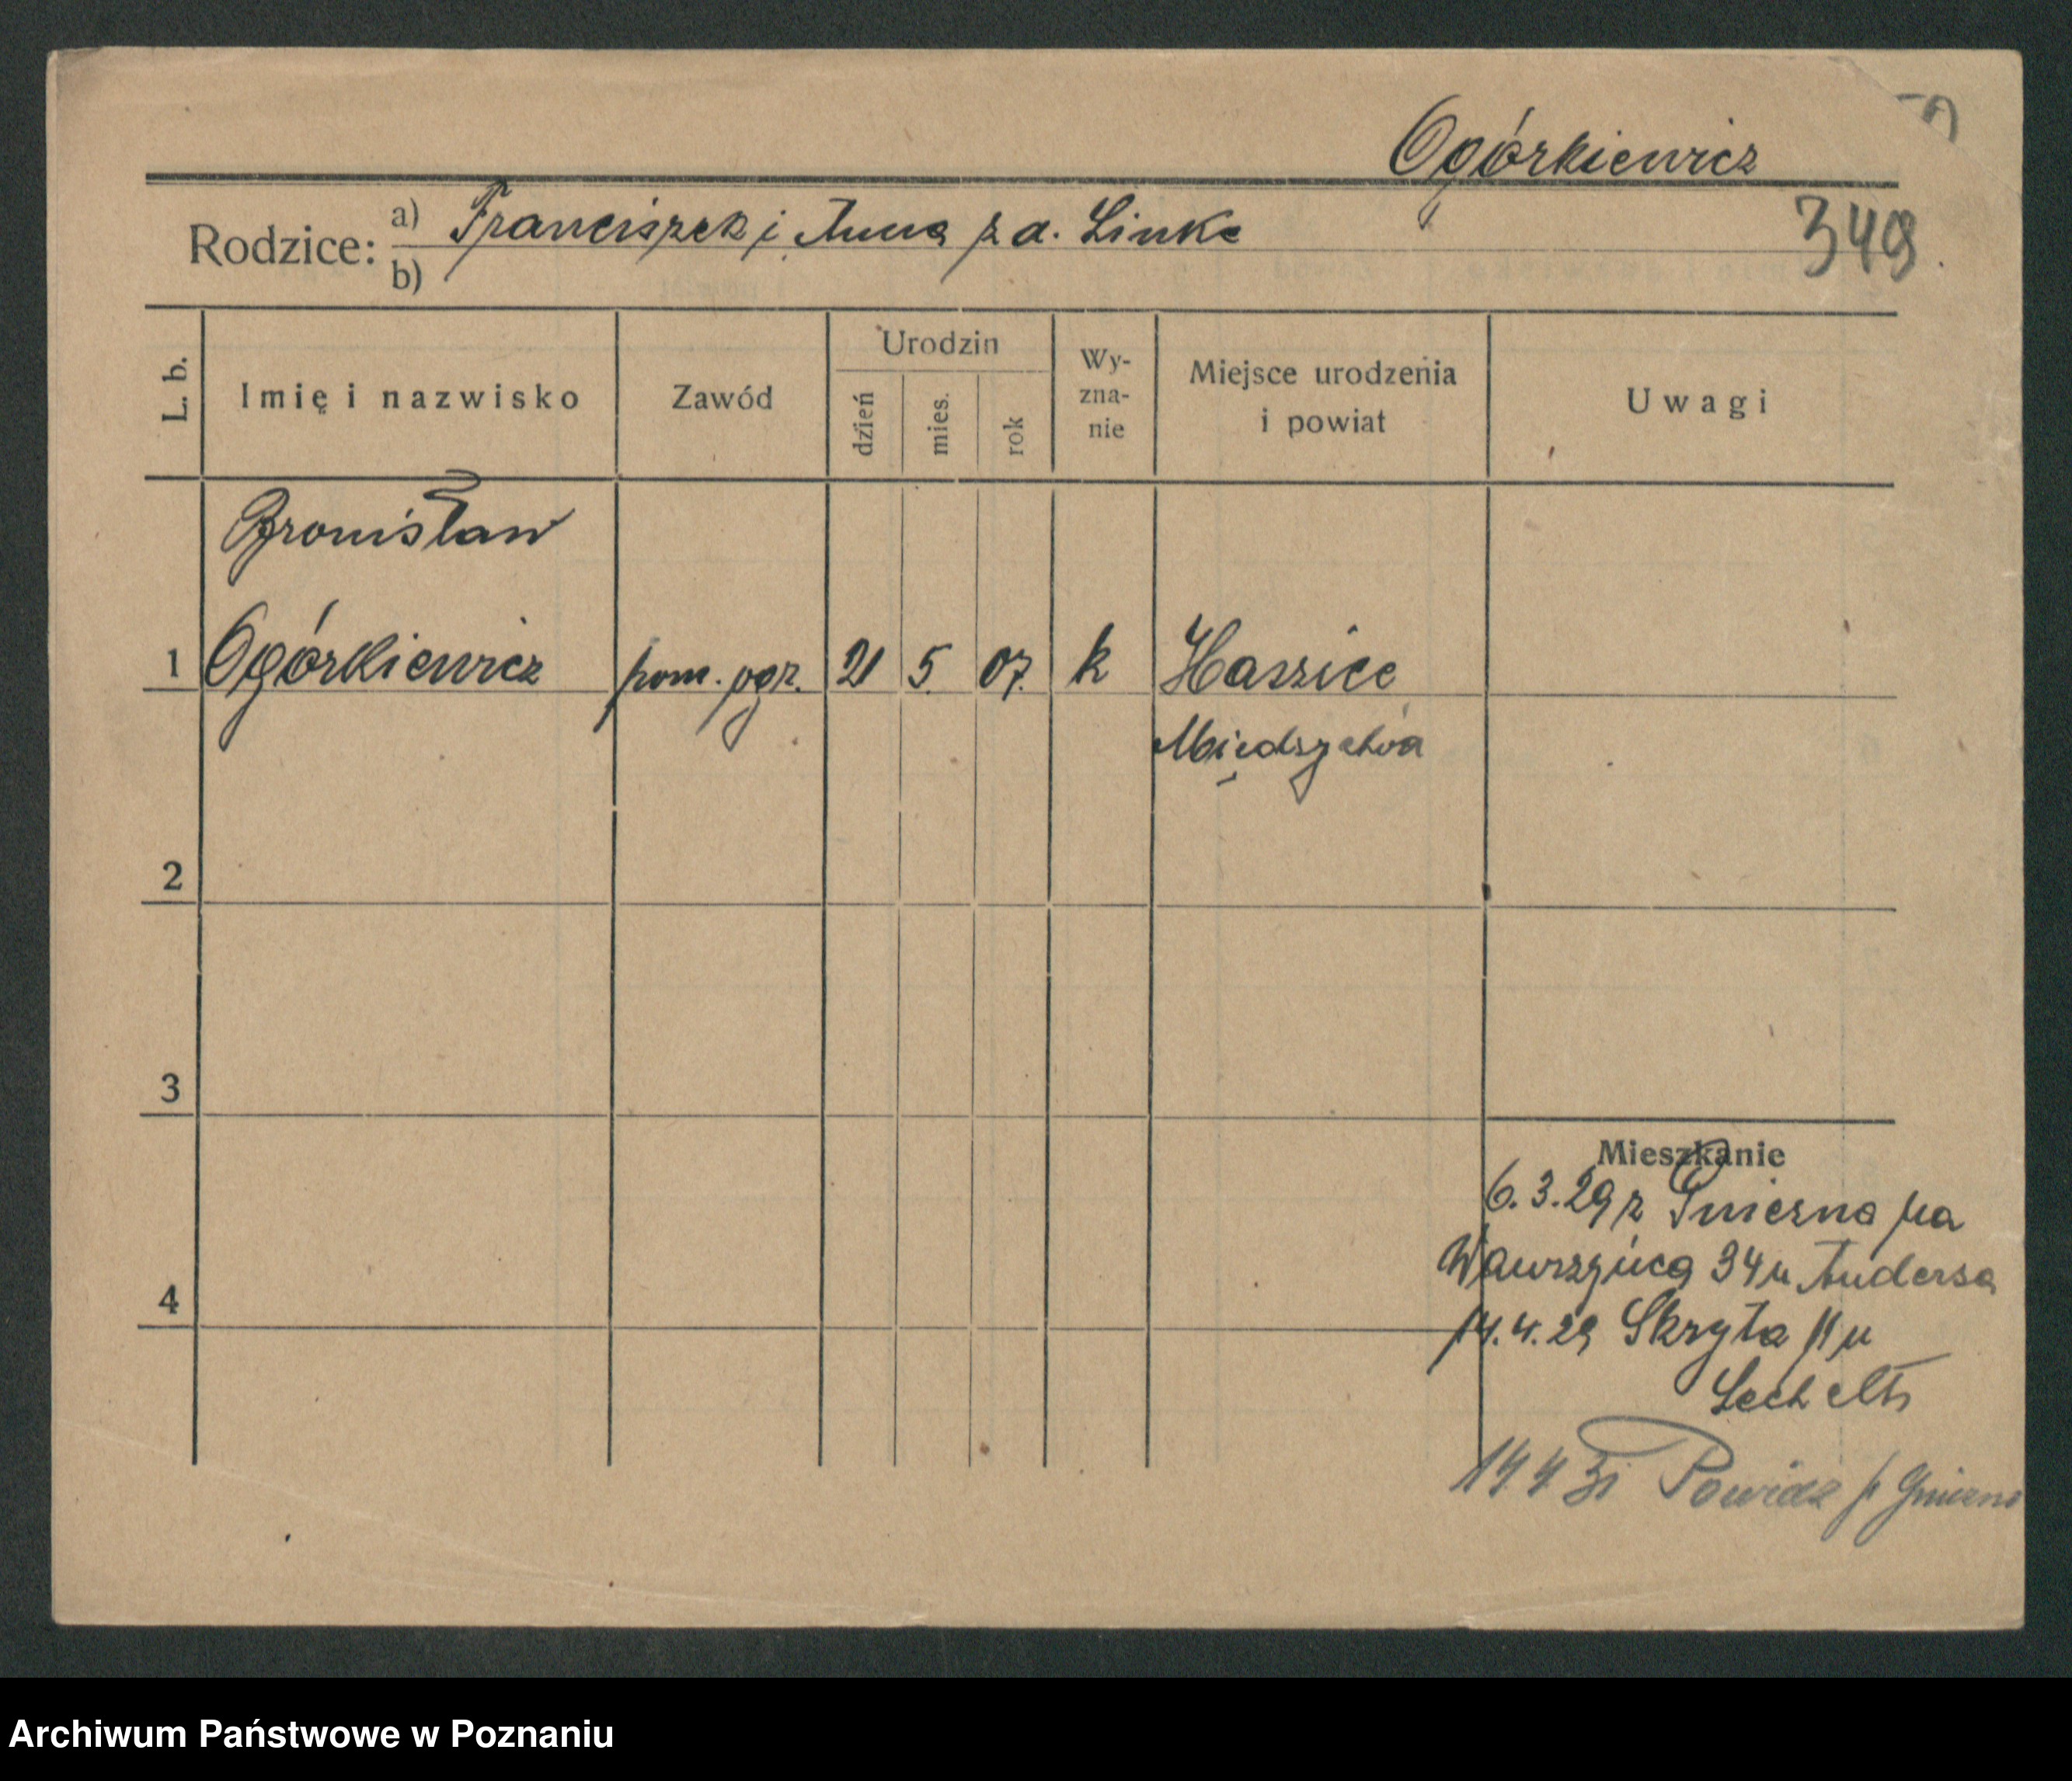 Ogórkiewicz
349
Rodzice: a) Franciszek i Anna z d. Linke
b)
L. b.
Imię i nazwisko
Zawód
Urodzin
dzień
mies.
rok
Wy-
zna-
nie
Miejsce urodzenia
i powiat
Uwagi
Bronisław
1 Ogórkiewicz pom. 21 5. 07. k
2
3
4
Mieszkanie
6.3.29 z Gniezna na
Wawrzyńca 34 u Andersa
14.4.29 Skryta 11 u
14 4 31 Powidz p Gniezno
Archiwum Państwowe w Poznaniu